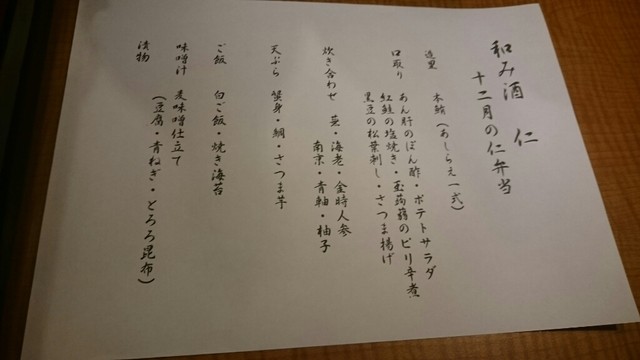 和み酒 仁
十二月の仁弁当
造里 本鮪（あしらえ一式）
口取り あん肝のぽん酢・ポテトサラダ
紅鮭の塩焼き・玉蒟蒻のピリ辛煮
黒豆の松葉刺し・さつま揚げ
炊き合わせ 蕪・海老・金時人参
南京・青軸・柚子
天ぷら 蟹身・鯛・さつま芋
ご飯 白ご飯・焼き海苔
味噌汁 麦味噌仕立て
（豆腐・青ねぎ・とろろ昆布）
漬物